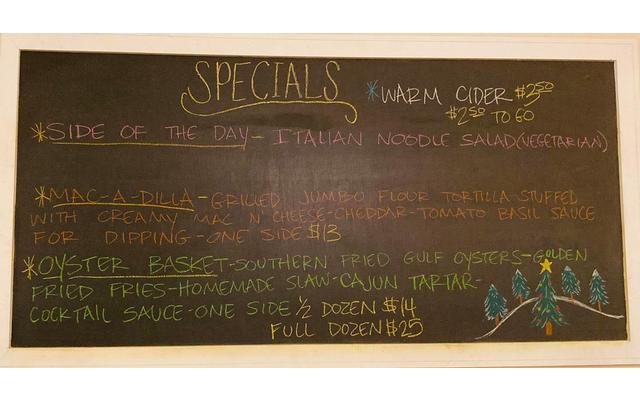 SPECIALS
*WARM CIDER $3.50
$2.50 TO GO
*SIDE OF THE DAY - ITALIAN NOODLE SALAD (VEGETARIAN)
*MAC-A-DILLA - GRILLED JUMBO FLOUR TORTILLA STUFFED
WITH CREAMY MAC N' CHEESE - CHEDDAR - TOMATO BASIL SAUCE
FOR DIPPING - ONE SIDE $13
*OYSTER BASKET - SOUTHERN FRIED GULF OYSTERS - GOLDEN
FRIED FRIES - HOMEMADE SLAW - CAJUN TARTAR -
COCKTAIL SAUCE - ONE SIDE 1/2 DOZEN $14
FULL DOZEN $25